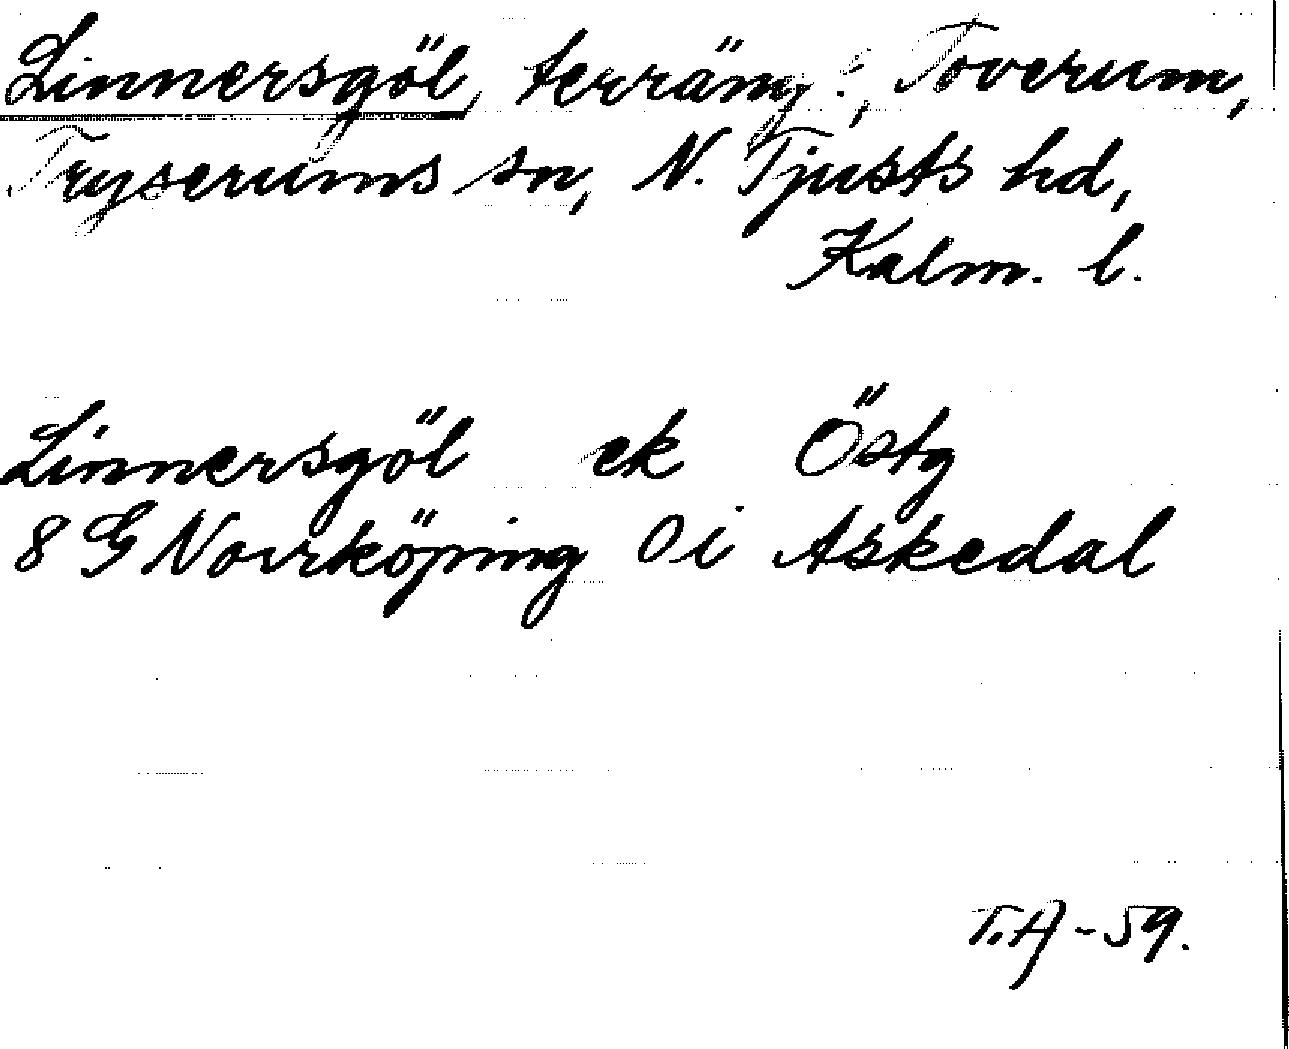 Linnersgöl, terräng!, Toverum,
Tryserums sn, N. Tjusts hd,
Kalm. l.
Linnersgöl ek Östg
8 G Norrköping 0 i Askedal
T.A - 59.